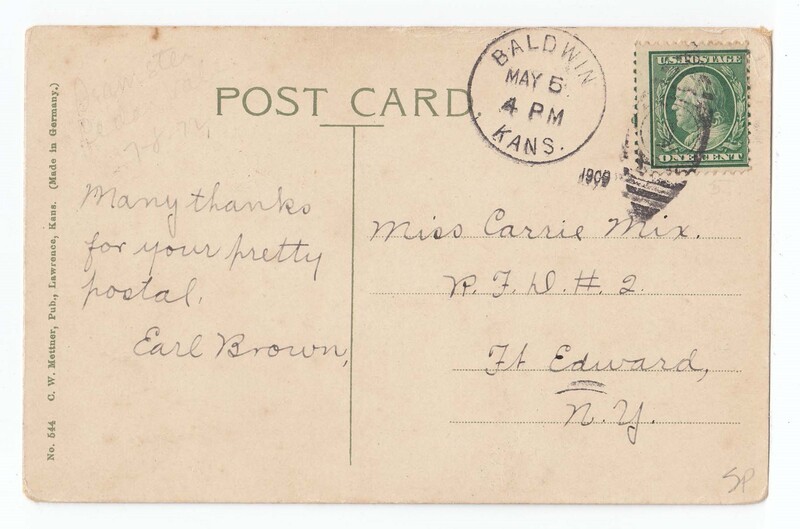 POST CARD
BALDWIN
MAY 5
4 PM
KANS.
1909
U.S. POSTAGE
ONE CENT
Many thanks
for your pretty
postal.
Earl Brown,
Miss Carrie Mix.
R. F. D. #. 2.
Ft Edward,
N. Y.
No. 544 C. W. Mettner, Pub., Lawrence, Kans. (Made in Germany.)
SP